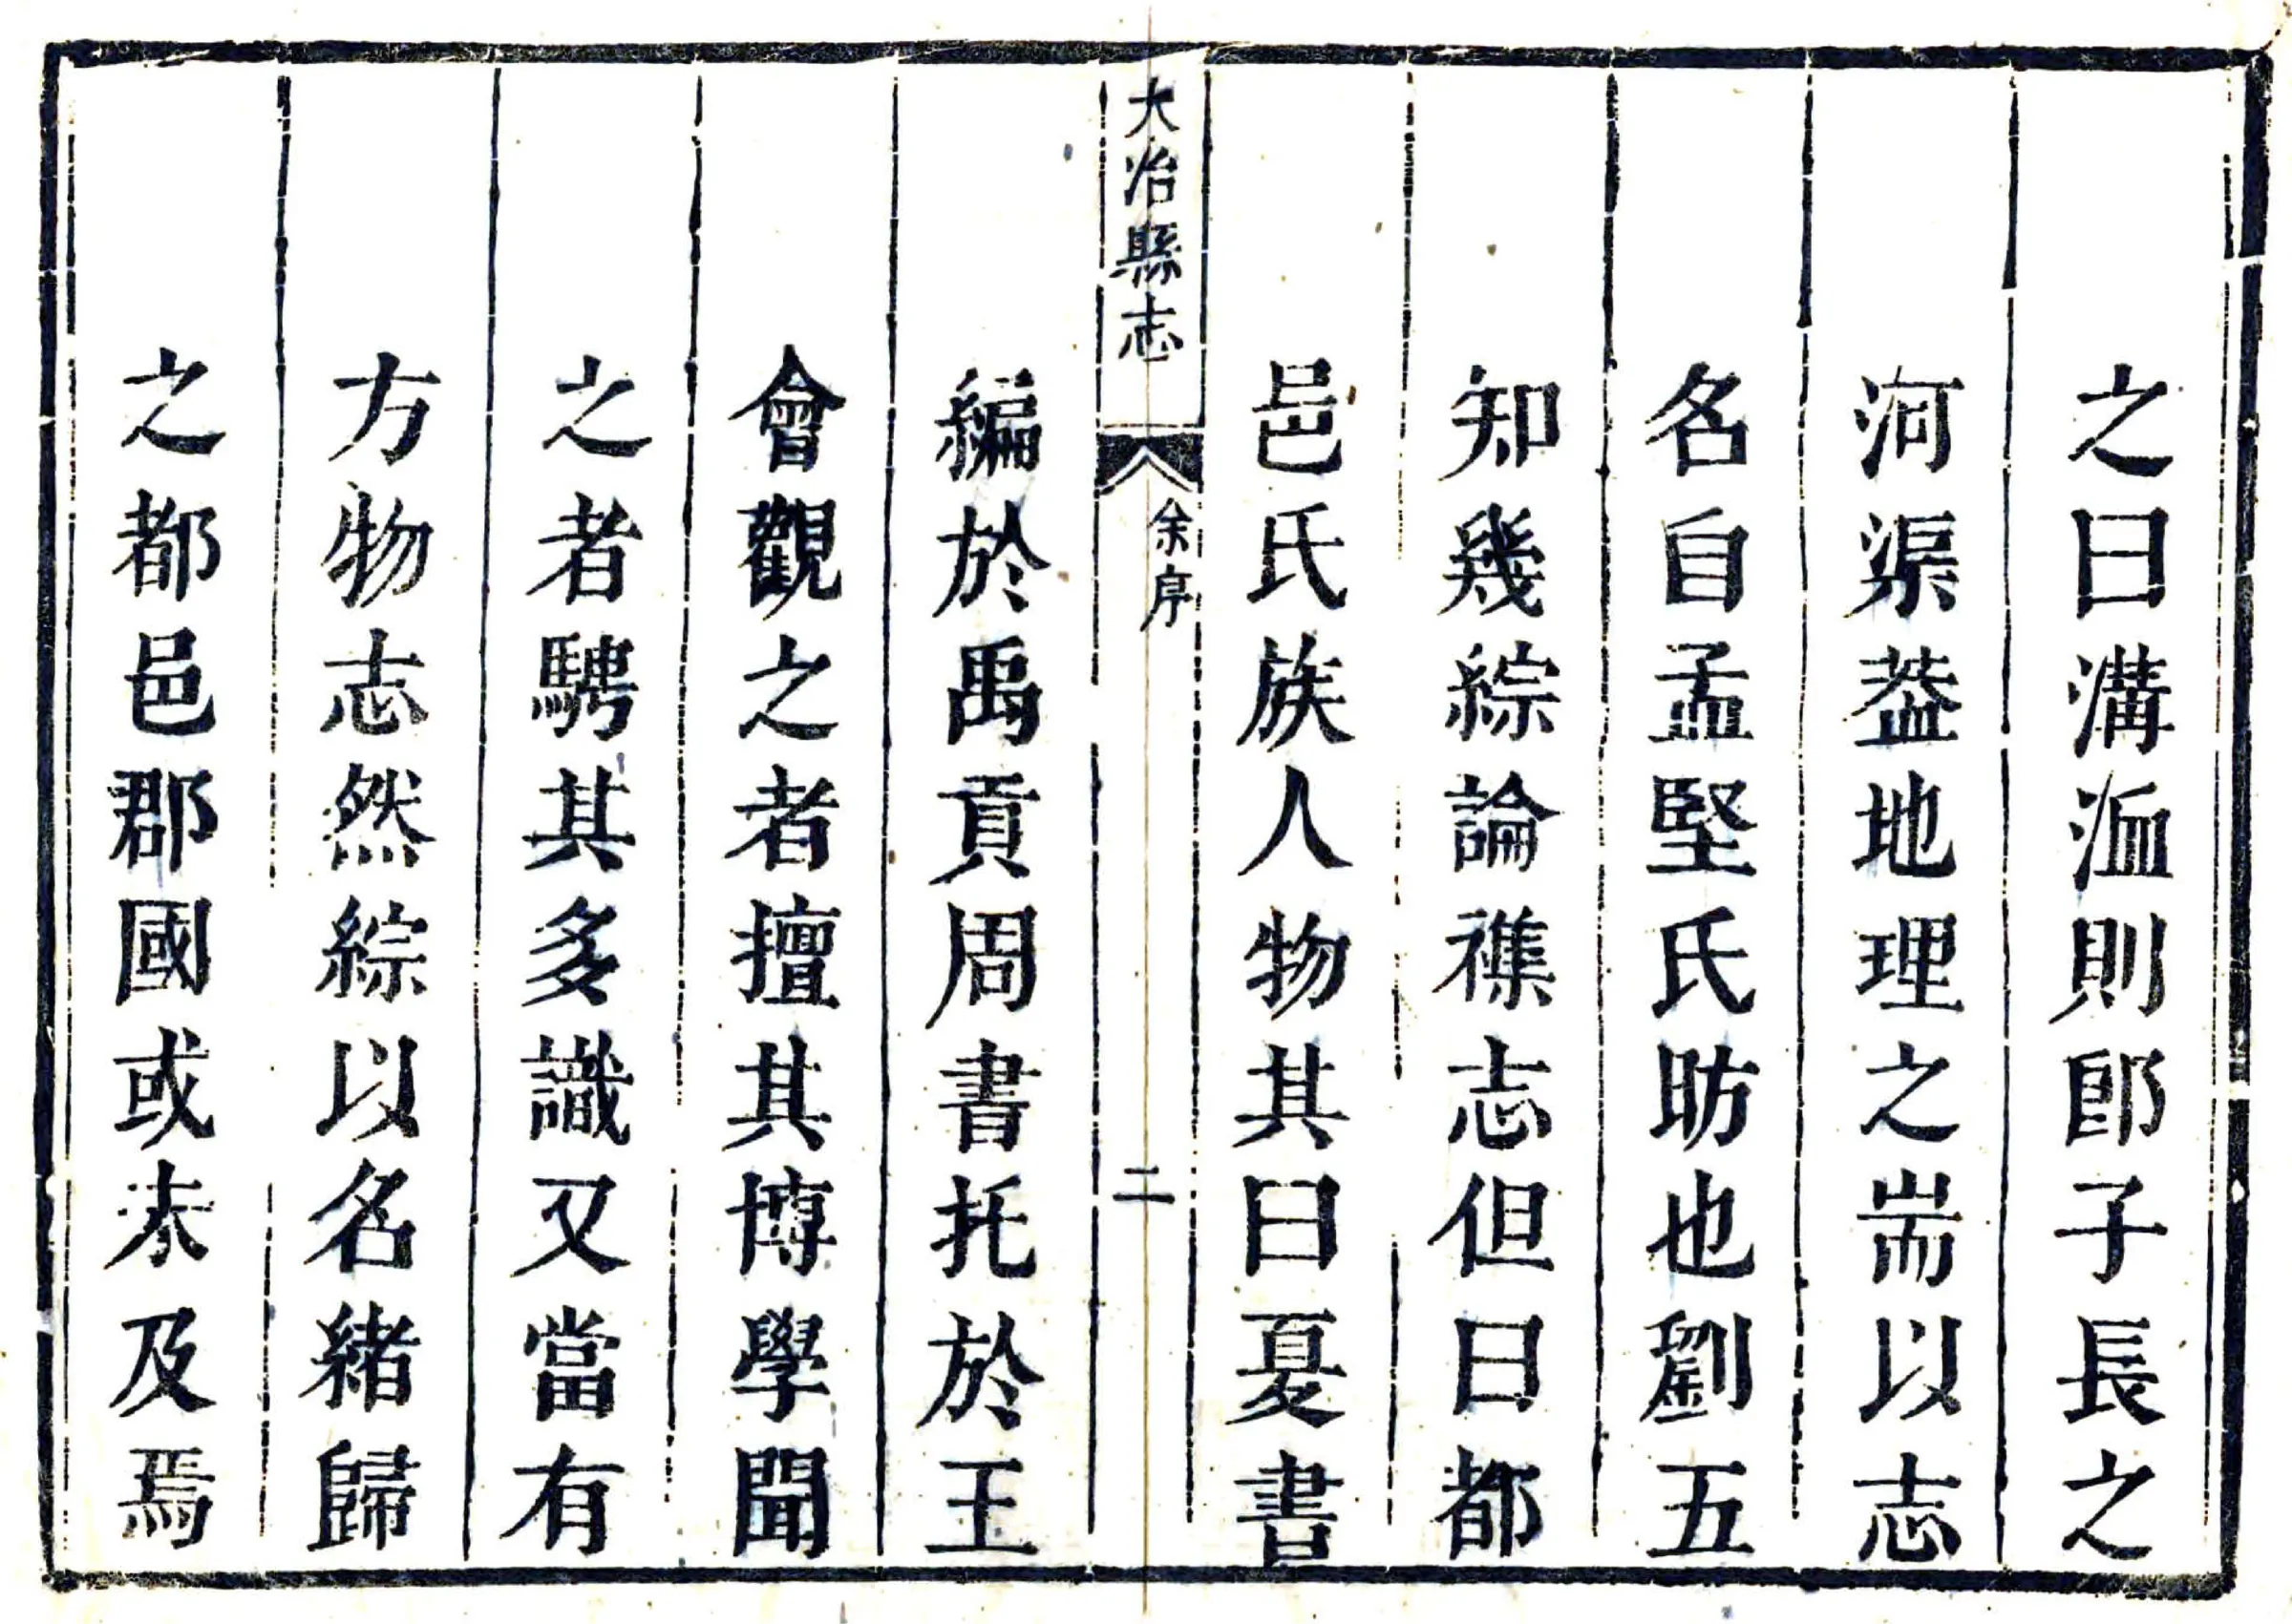 之曰溝洫則郎子長之
河渠葢地理之耑以志
名自孟堅氏昉也劉五
知幾綜論襍志但曰都
邑氏族人物其曰夏書
大冶縣志
余序
二
編於禹貢周書托於王
會觀之者擅其博學聞
之者騁其多識又當有
方物志然綜以名緒歸
之都邑郡國或未及焉